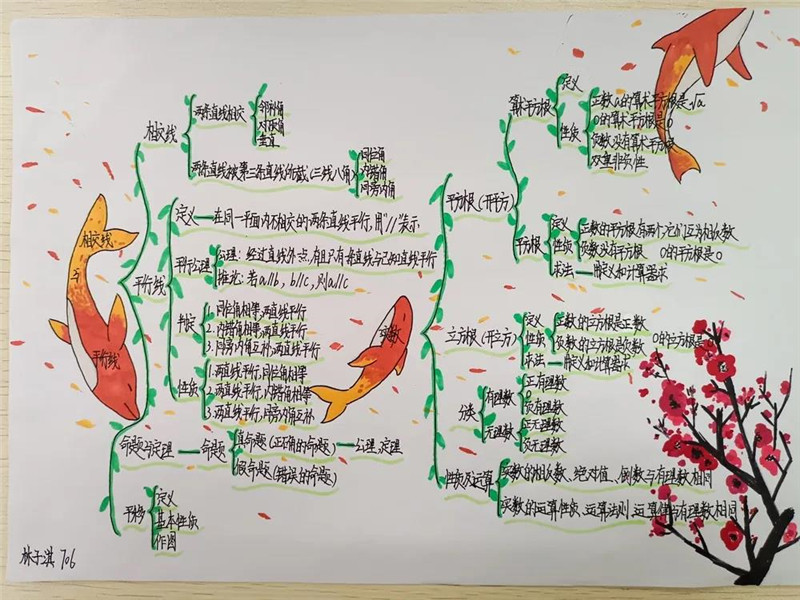 相交线
与
平行线
相交线
两条直线相交
邻补角
对顶角
垂直
两条直线被第三条直线所截(三线八角)
同位角
内错角
同旁内角
平行线
定义
在同一平面内不相交的两条直线平行,用"//"表示
平行公理
公理:经过直线外一点,有且只有一条直线与已知直线平行
推论:若a//b,b//c,则a//c
判定
1.同位角相等,两直线平行
2.内错角相等,两直线平行
3.同旁内角互补,两直线平行
性质
1.两直线平行,同位角相等
2.两直线平行,内错角相等
3.两直线平行,同旁内角互补
命题与定理
命题
真命题(正确的命题)
公理,定理
假命题(错误的命题)
平移
定义
基本性质
作图
林子淇 706
实数
平方根(开平方)
算术平方根
定义
性质
正数a的算术平方根是√a
0的算术平方根是0
负数没有算术平方根
双重非负性
平方根
定义
性质
正数的平方根有两个,它们互为相反数
负数没有平方根 0的平方根是0
求法
用定义和计算器求
立方根(开立方)
定义
性质
正数的立方根是正数
负数的立方根是负数
0的立方根是0
求法
用定义和计算器求
分类
有理数
正有理数
0
负有理数
无理数
正无理数
负无理数
性质及运算
实数的相反数、绝对值、倒数与有理数相同
实数的运算性质、运算法则、运算律与有理数相同